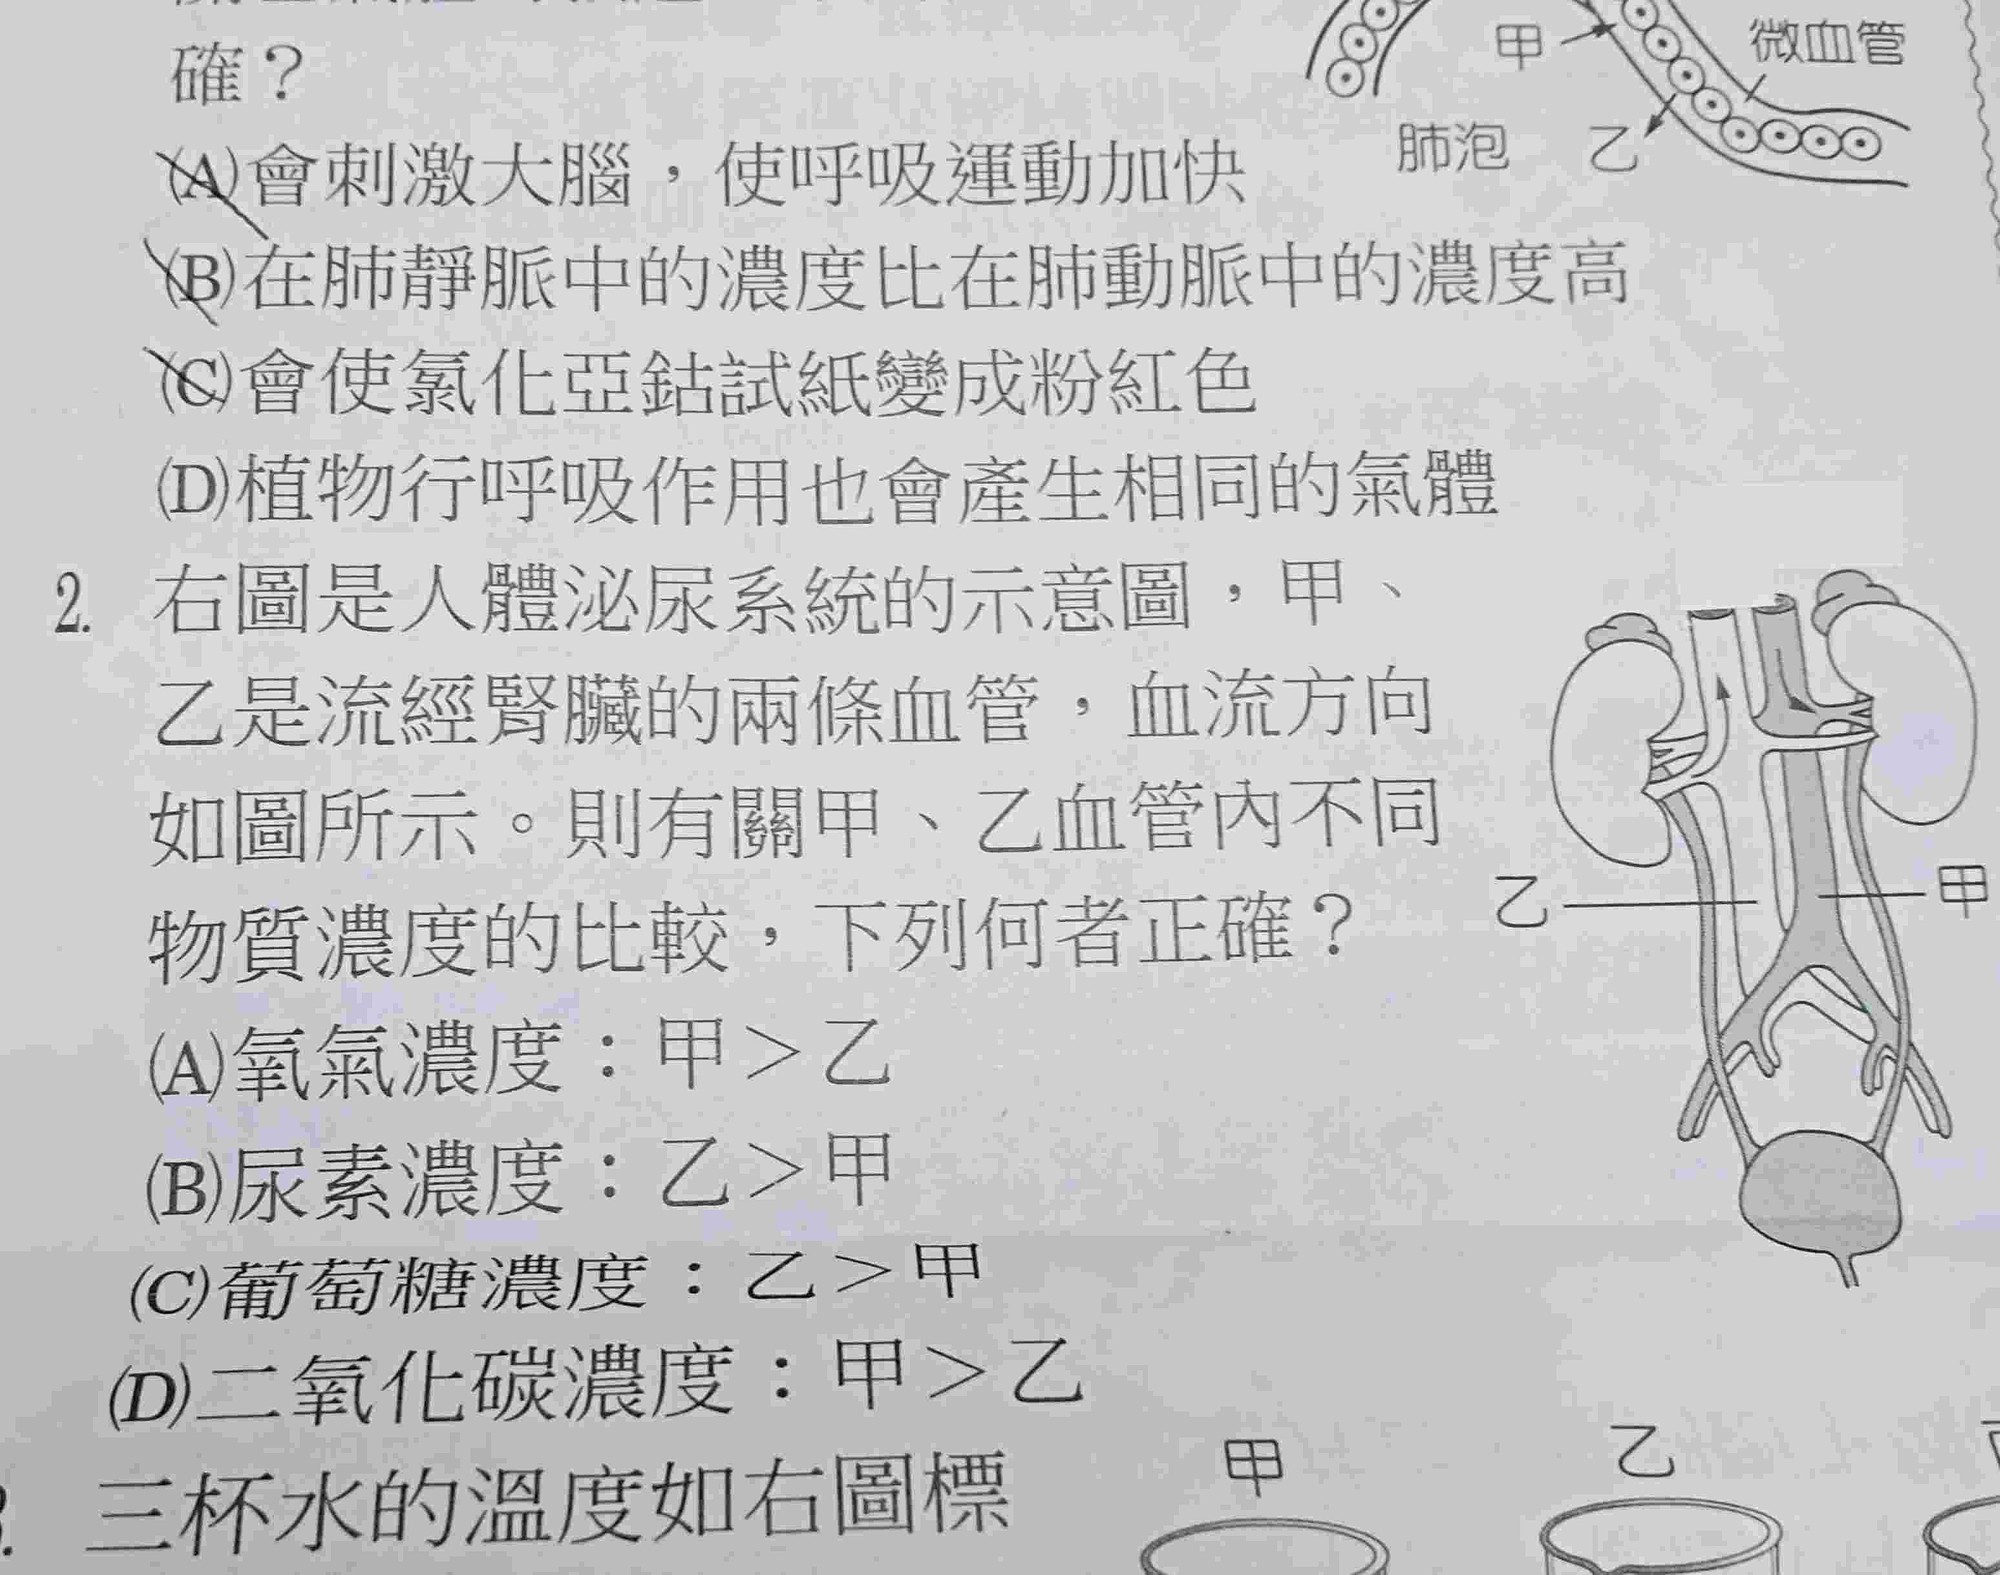 確？
甲
微血管
肺泡
乙
(A)會刺激大腦，使呼吸運動加快
(B)在肺靜脈中的濃度比在肺動脈中的濃度高
(C)會使氯化亞鈷試紙變成粉紅色
(D)植物行呼吸作用也會產生相同的氣體
2. 右圖是人體泌尿系統的示意圖，甲、
乙是流經腎臟的兩條血管，血流方向
如圖所示。則有關甲、乙血管內不同
物質濃度的比較，下列何者正確？
乙
甲
(A)氧氣濃度：甲＞乙
(B)尿素濃度：乙＞甲
(C)葡萄糖濃度：乙＞甲
(D)二氧化碳濃度：甲＞乙
三杯水的溫度如右圖標
甲
乙